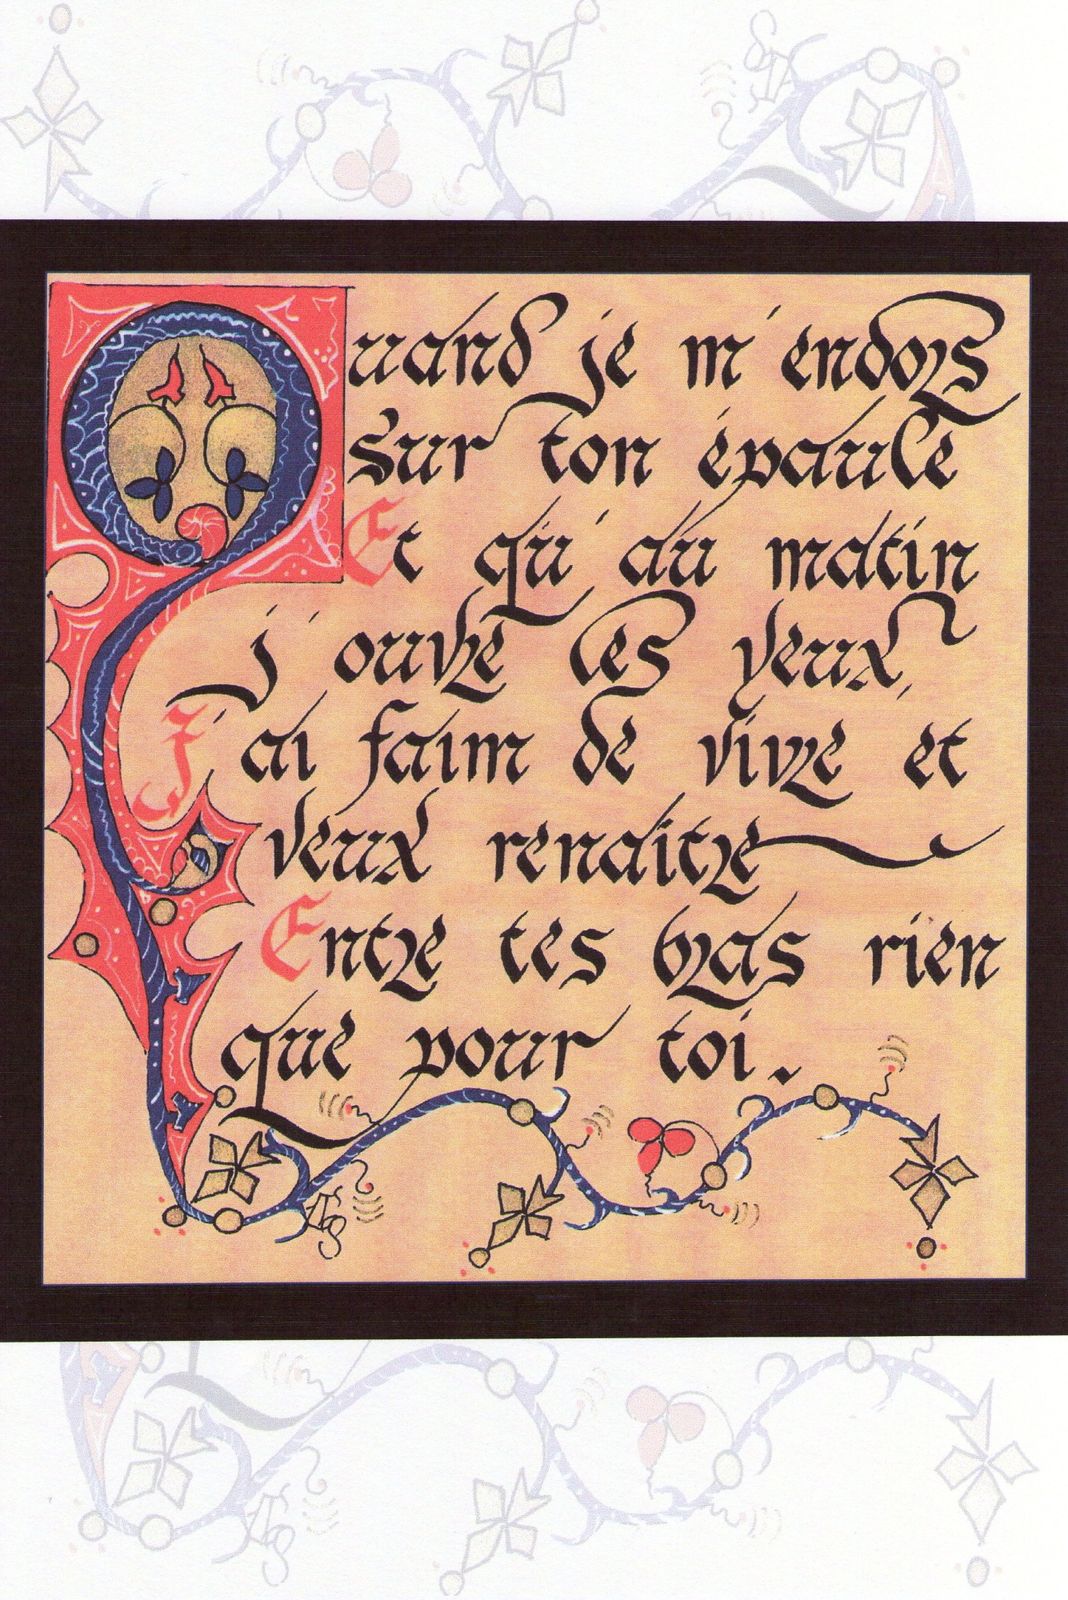 Quand je m'endors
sur ton épaule
Et qu'au matin
j'ouvre les yeux,
J'ai faim de vivre et
veux renaitre
Entre tes bras rien
que pour toi.